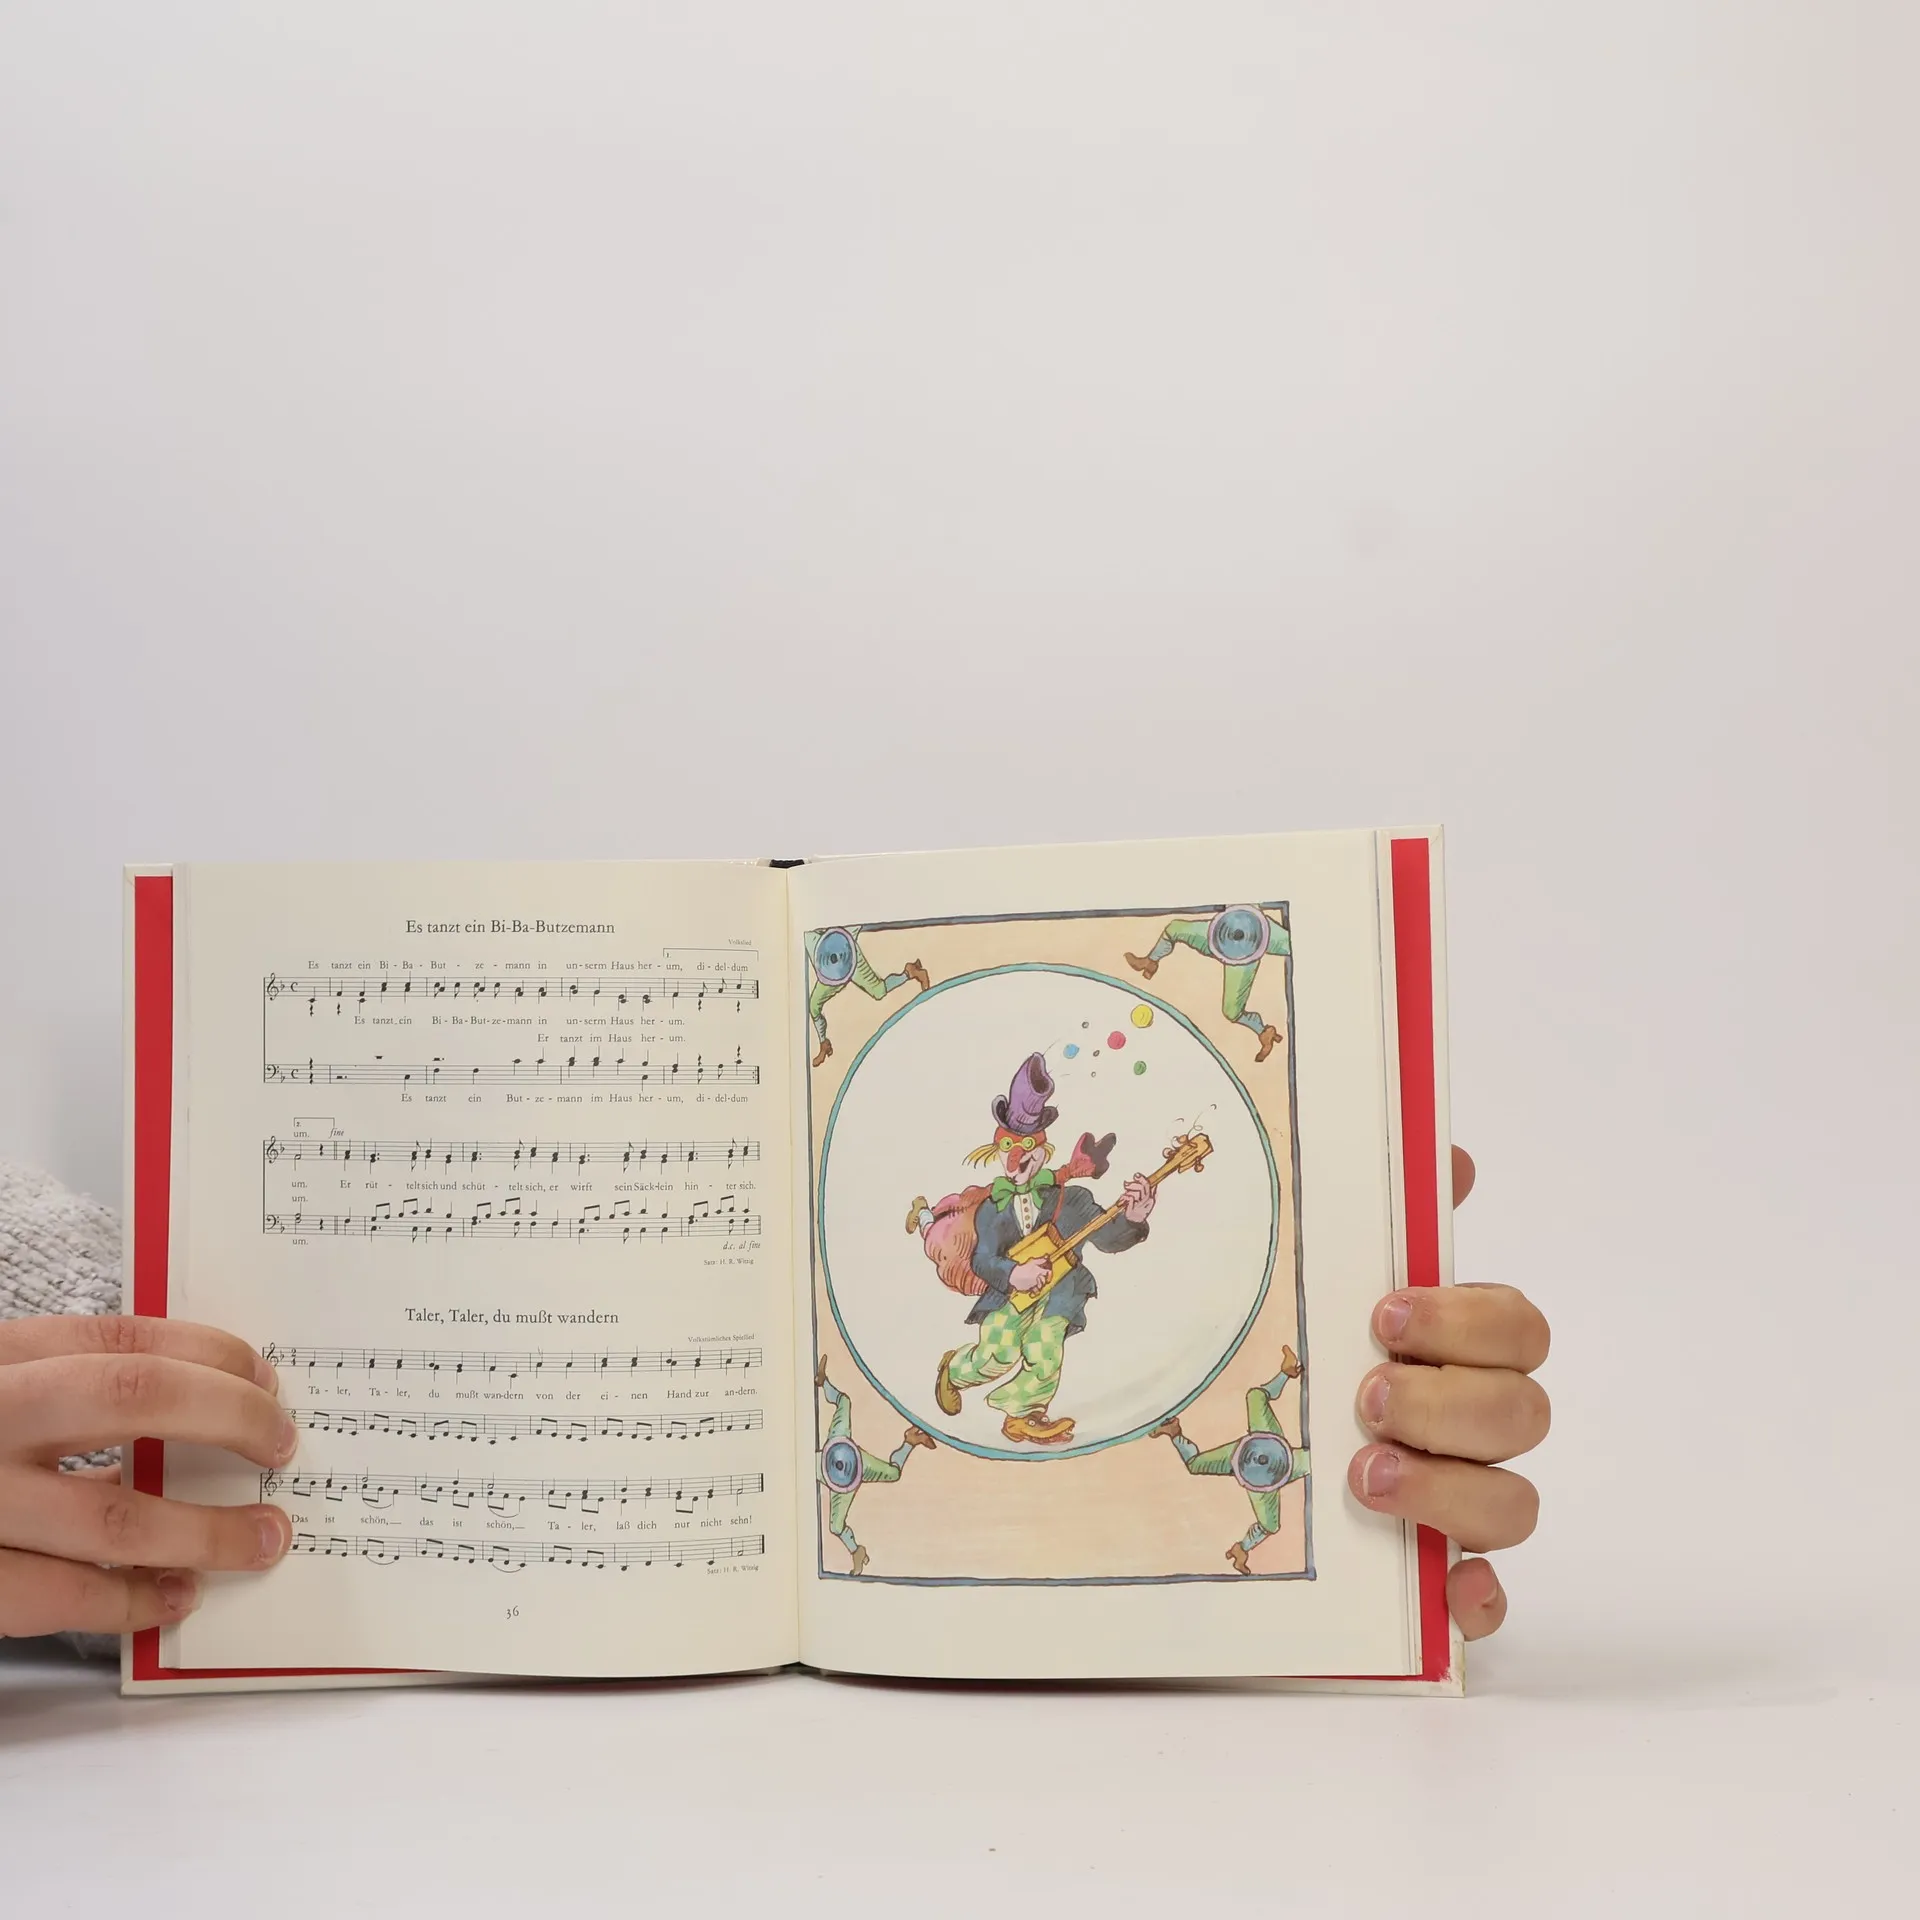 Es tanzt ein Bi-Ba-Butzemann
Volkslied
1.
Es tanzt ein Bi - Ba - But - ze - mann in un-serm Haus her - um, di - del-dum
Es tanzt ein Bi - Ba-But-ze-mann in un-serm Haus her - um.
Er tanzt im Haus her - um.
Es tanzt ein But - ze - mann im Haus her - um, di - del-dum
2.
um. fine
um. Er rüt - telt sich und schüt - telt sich, er wirft sein Säck-lein hin - ter sich.
um.
um.
d.c. al fine
Satz: H. R. Wittig
Taler, Taler, du mußt wandern
Volkstümliches Spiellied
Ta - ler, Ta - ler, du mußt wan-dern von der ei - nen Hand zur an-dern.
Das ist schön,— das ist schön,— Ta - ler, laß dich nur nicht sehn!
Satz: H. R. Wittig
36